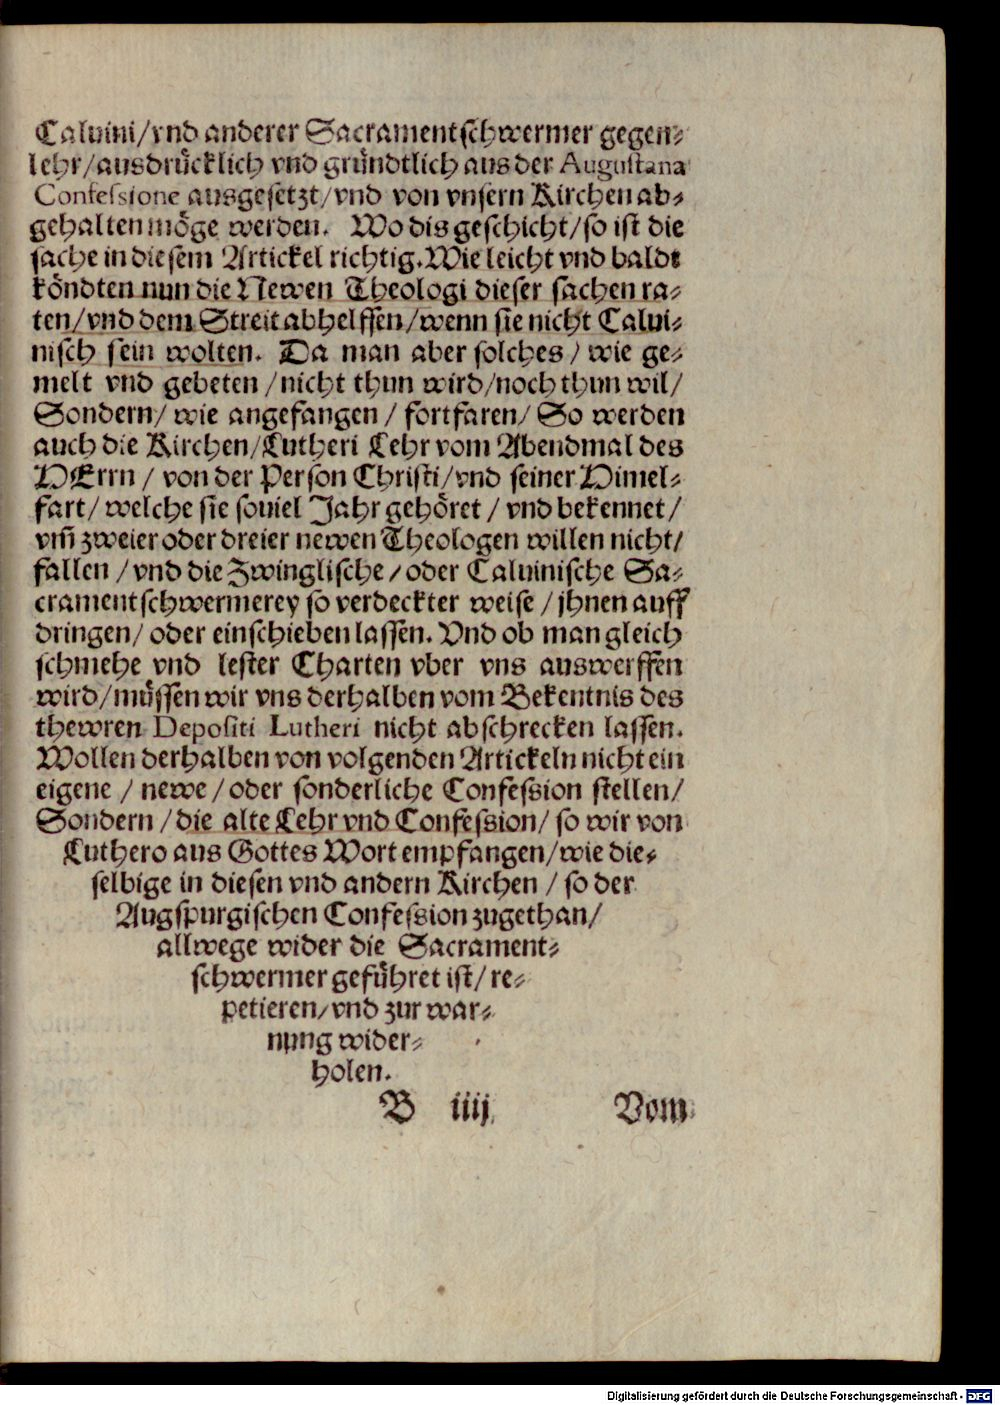 Caluini/vnd anderer Sacramentschwermer gegen⸗
lehr/ausdrücklich vnd gründtlich aus der Augustana
Confessione ausgesetzt/vnd von vnsern Kirchen ab⸗
gehalten möge werden. Wo dis geschicht/so ist die
sache in diesem Artickel richtig.Wie leicht vnd baldt
köndten nun die Newen Theologi dieser sachen ra⸗
ten/vnd dem Streit abhelffen/wenn sie nicht Calui⸗
nisch sein wolten. Da man aber solches/ wie ge⸗
melt vnd gebeten/nicht thun wird/noch thun wil/
Sondern/ wie angefangen/ fortfaren/ So werden
auch die Kirchen/Lutheri Lehr vom Abendmal des
HErrn/ von der Person Christi/vnd seiner Himel⸗
fart/ welche sie souiel Jahr gehöret/ vnd bekennet/
vm̃ zweier oder dreier newen Theologen willen nicht/
fallen/vnd die Zwinglische/oder Caluinische Sa⸗
cramentschwermerey so verdeckter weise/jhnen auff
dringen/ oder einschieben lassen. Vnd ob man gleich
schmehe vnd lester Charten vber vns auswerffen
wird/müssen wir vns derhalben vom Bekentnis des
thewren Depositi Lutheri nicht abschrecken lassen.
Wollen derhalben von volgenden Artickeln nicht ein
eigene/ newe/oder sonderliche Confession stellen/
Sondern/die alte Lehr vnd Confession/ so wir von
Luthero aus Gottes Wort empfangen/wie die⸗
selbige in diesen vnd andern Kirchen/ so der
Augspurgischen Confession zugethan/
allwege wider die Sacrament⸗
schwermer geführet ist/ re⸗
petieren/vnd zur war⸗
nung wider⸗
holen.
B iiij Vom
Digitalisierung gefördert durch die Deutsche Forschungsgemeinschaft - DFG